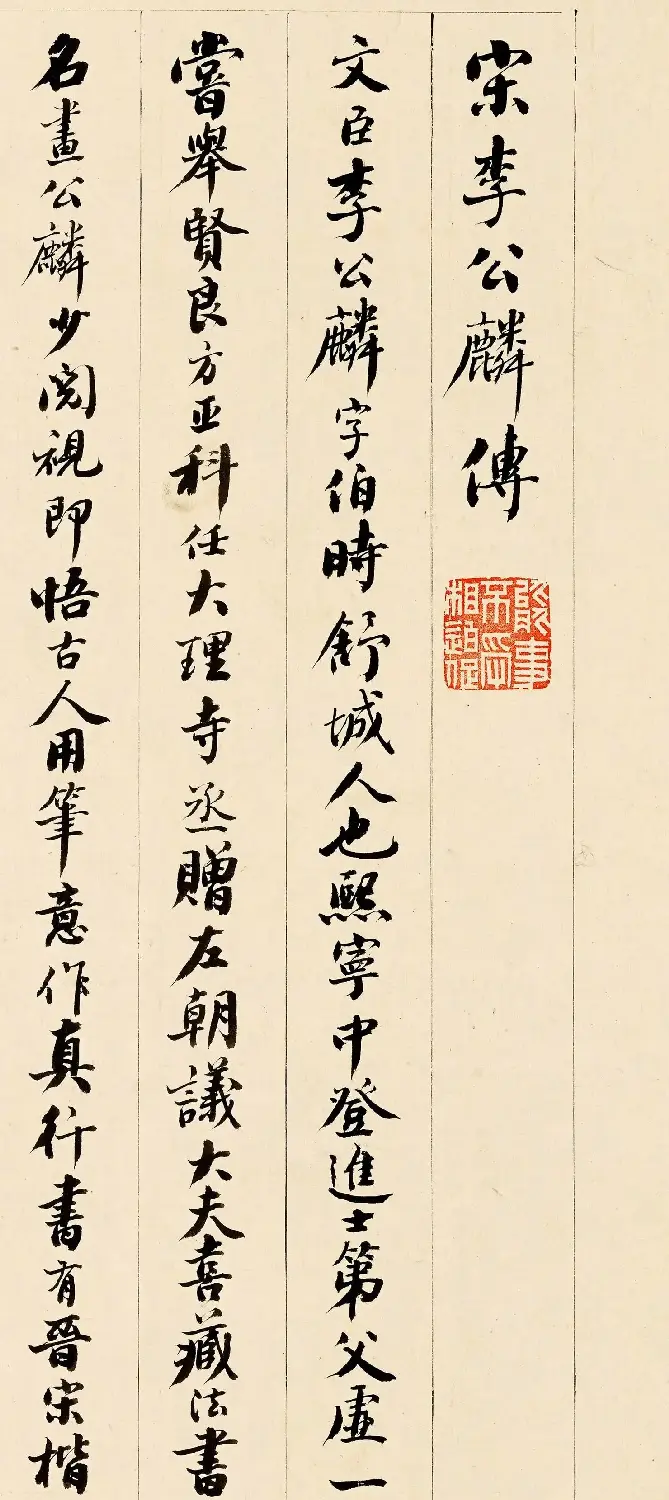 宋李公麟傳
能事不受相迫促
文臣李公麟字伯時舒城人也熙寧中登進士第父虛一
嘗舉賢良方正科任大理寺丞贈左朝議大夫喜藏法書
名畫公麟少閱視即悟古人用筆意作真行書有晉宋楷